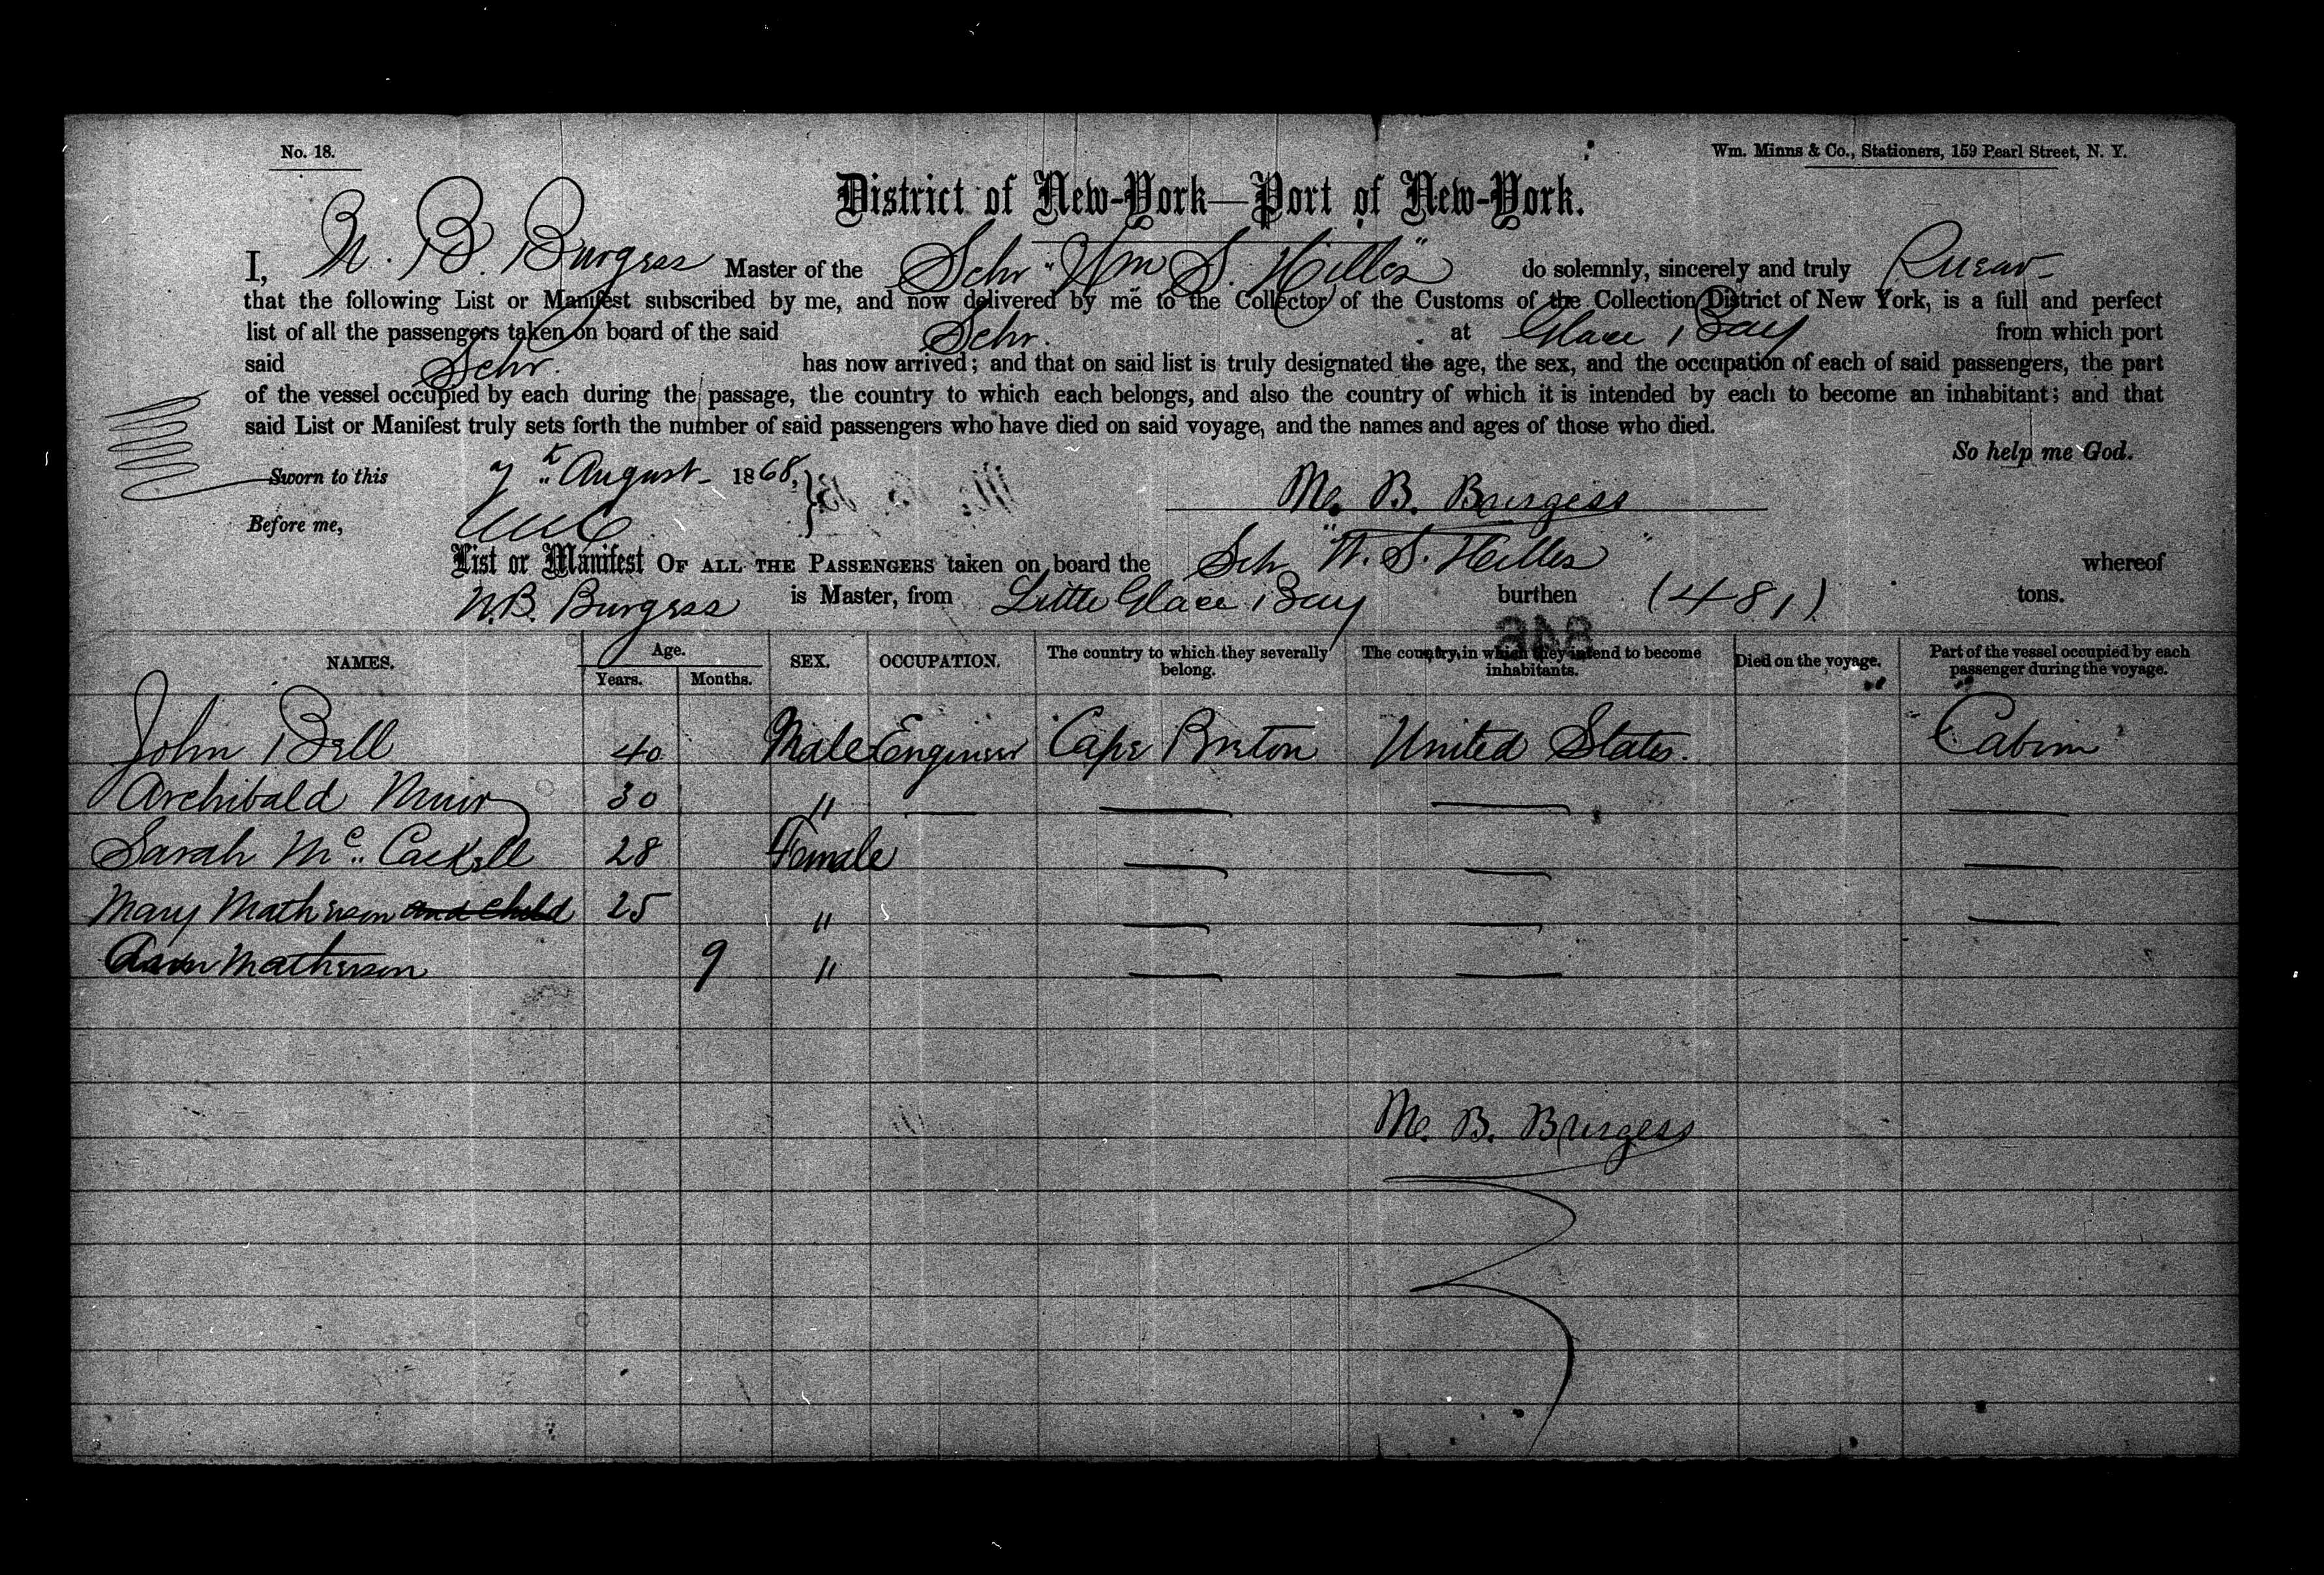 No. 18.
Wm. Minns & Co., Stationers, 159 Pearl Street, N. Y.
District of New-York—Port of New-York.
I, N. B. Burgess Master of the Schr "Wm S. Hilles" do solemnly, sincerely and truly swear
that the following List or Manifest subscribed by me, and now delivered by me to the Collector of the Customs of the Collection District of New York, is a full and perfect
list of all the passengers taken on board of the said Schr. at Glace Bay from which port
said Schr. has now arrived; and that on said list is truly designated the age, the sex, and the occupation of each of said passengers, the part
of the vessel occupied by each during the passage, the country to which each belongs, and also the country of which it is intended by each to become an inhabitant; and that
said List or Manifest truly sets forth the number of said passengers who have died on said voyage, and the names and ages of those who died.
So help me God.
Sworn to this 7th August 1868,
M. B. Burgess
Before me,
List or Manifest OF ALL THE PASSENGERS taken on board the Sch "W. S. Hilles" whereof
N.B. Burgess is Master, from Little Glace Bay burthen (481) tons.
NAMES. Age. Years. Months. SEX. OCCUPATION. The country to which they severally belong. The country in which they intend to become inhabitants. Died on the voyage. Part of the vessel occupied by each passenger during the voyage.
John Bell 40 Male Engineer Cape Breton United States. Cabin
Archibald Muir 30 " — — — —
Sarah Mc. Caskell 28 Female — — —
Mary Matheson and child 25 " — — —
Matheson 9 " — —
M. B. Burgess